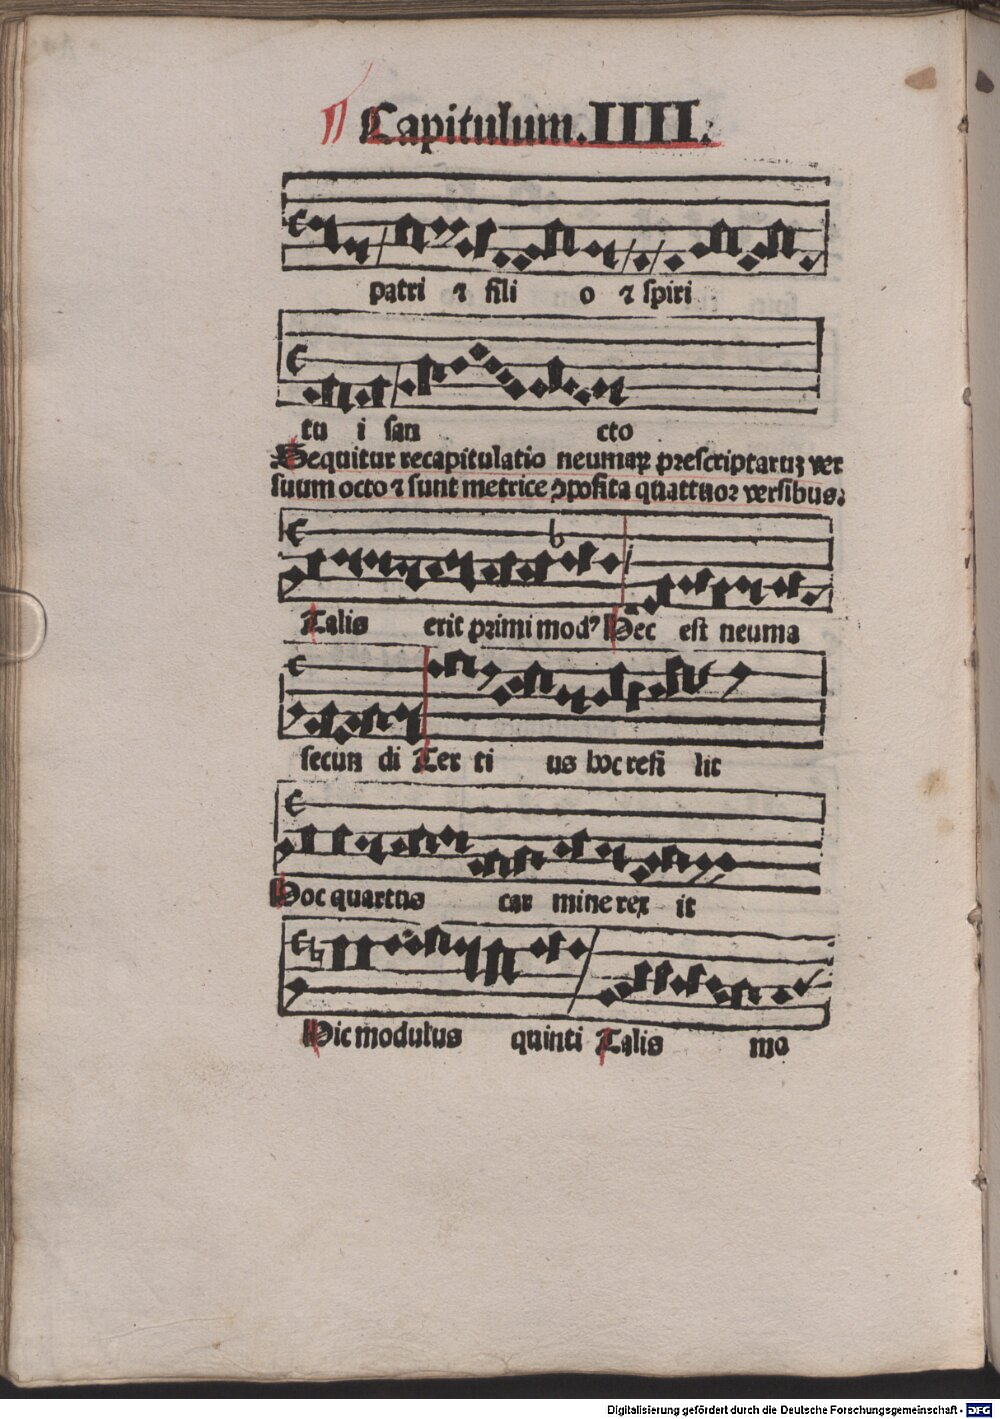 Capitulum.IIII.
patri ⁊ fili o ⁊ spiri
tu i san cto
Sequitur recapitulatio neumaꝝ prescriptaruꝫ ver
suum octo ⁊ sunt metrice ꝯposita quattuor versibus.
Talis erit primi modꝰ Hec est neuma
secun di Ter ti us hoc resi lit
Hoc quartus car mine rex it
Hic modulus quinti Talis mo
Digitalisierung gefördert durch die Deutsche Forschungsgemeinschaft - DFG